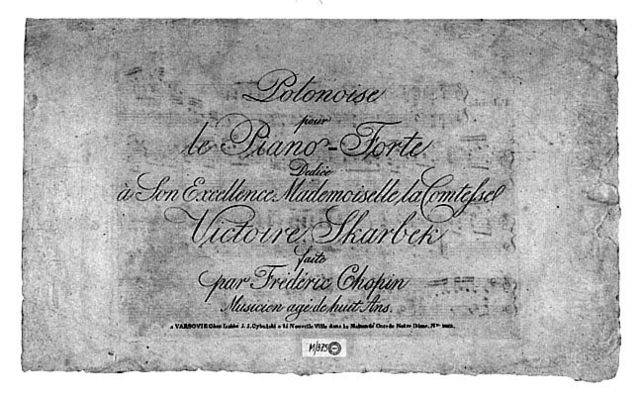 Polonoise
pour
le Piano-Forte
Dediée
à Son Excellence Mademoiselle la Comtesse
Victoire Skarbek
faite
par Frédéric Chopin
Musicien agé de huit Ans.
a VARSOVIE Chez l'abbé J. J. Cybulski a la Nouvelle Ville dans la Maison de Cure de Notre Dame. Nro